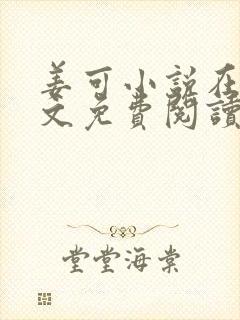 姜可小说在
文免费閱讀
堂堂海棠